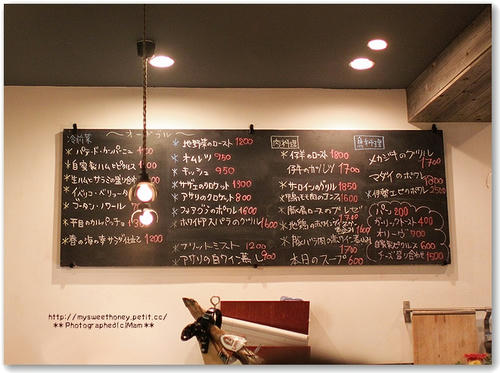 ～オードブル～
冷前菜
* パテ・ド・カンパーニュ
* 自家製ハムとピクルス
* 生ハムとサラミの盛り合わせ
* イベリコ・ベジョータ
* ブータン・ノワール
* 平目のカルパッチョ
* 春の海の幸サラダ仕立て 1200
* 地野菜のロースト 1200
* オムレツ 950
* キッシュ 950
* サザエのクロケット 1300
* アサリのクロケット 800
* フォアグラのポワレ 1600
* ホワイトアスパラのグリル 1600
* フリットミスト 1200
* アサリの白ワイン蒸し 900
肉料理
* 仔羊のロースト 1800
仔牛のカツレツ 1700
* サーロイングリル 1850
1600
1700
本日のスープ 600
魚料理
メカジキのグリル 1700
マダイのポワレ
* 伊勢エビのポワレ 2500
パン 200
ガーリックトースト 400
オリーヴ 700
自家製ピクルス 600
チーズ盛り合わせ 1500
http://mysweethoney.petit.cc/
** Photographed(c)Mam **